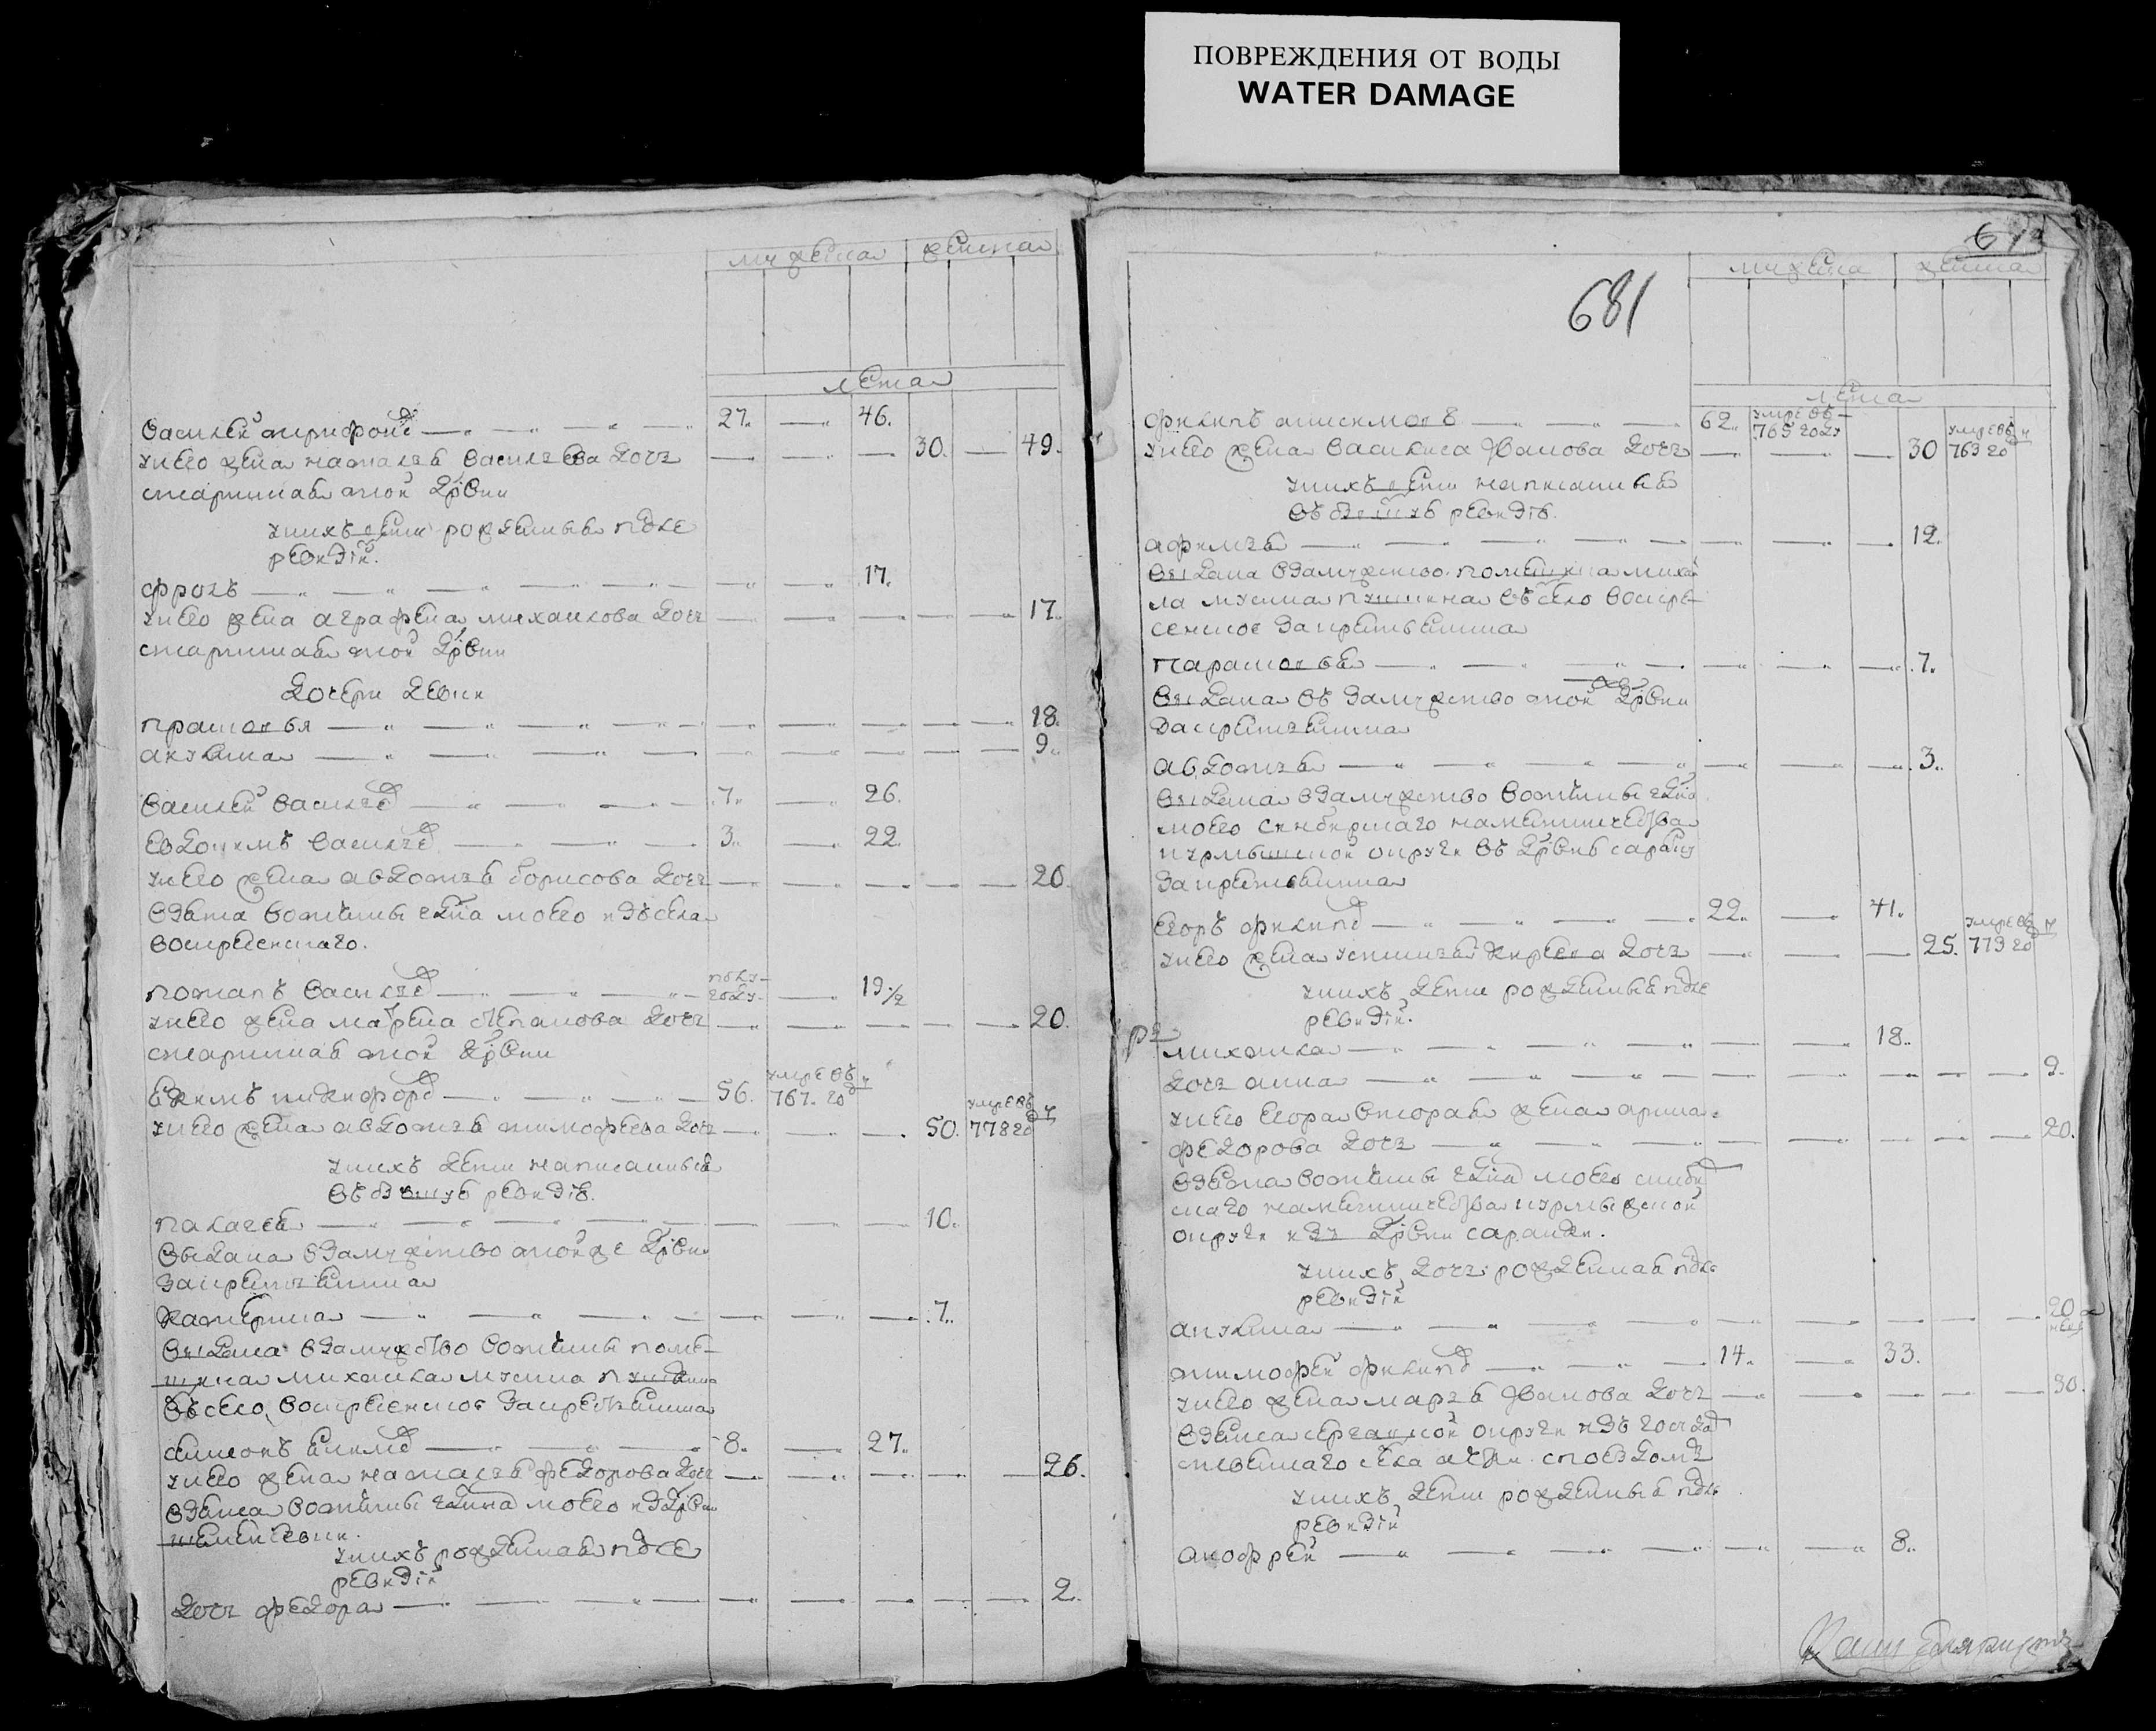 ПОВРЕЖДЕНИЯ ОТ ВОДЫ
WATER DAMAGE
мужеска женска
лета
василеи трифонов 27. 46.
у него жена наталья васильева дочь 30. 49.
старинная тои дрвни
у них дети рожденныя после
ревизии.
фролъ 17.
у него жена аграфена михаилова дочь 17.
старинная тои дрвни
дочери девки
прасковья 18.
акулина 9.
василеи васильев 7. 26.
евдокимъ васильев 3. 22.
у него жена авдотья борисова дочь 20.
взята вотчины гдна моего изъ села
воскресенскаго.
потапъ васильев полу-
году 19 1/2
у него жена марфена степанова дочь 20.
старинная тои дрвни
екимъ никифоров 56. умре въ
767. году
у него жена авдотья тимофеева дочь 50. умре въ
778 году
у них дети написанныя
въ бывшую ревизию.
палагея 10.
выдана в замужство тоиже дрвни
за крестьянина
катерина 7.
выдана в замужство вотчины поме-
щика михаила мусина пушкина
въ село воскресенское за крестьянина
симионъ екимов 8. 27.
у него жена наталья федорова дочь 26.
взята вотчины гдина моего из дрвни

у них рожденная после
ревизии
дочь федора 2.
673
681
мужеска женска
лета
филипъ анисимовъ 62. умре въ
765 году
у него жена василиса иванова дочь 30 умре въ
763 году
у них дети написанныя
въ бывшую ревизию.
афимья 12.
выдана в замужство помещика михаи
ла мусина пушкина въ село воскре-
сенское за крестьянина
парасковья 7.
выдана въ замужство тои же дрвни
за крестьянина
авдотья 3.
выдана в замужство вотчины гдна
моего синбирскаго наместничества
курмышскои округи въ дрвню саранку
за крестьянина
егоръ филипов 22. 41.
у него жена устинья киреева дочь 25. умре въ
773 году
у них дети рожденныя после
ревизии.
михаила 18.
дочь анна 9.
у него егора вторая жена арина
федорова дочь 20.
взята вотчины гдна моего синбир
скаго наместничества курмышскои
округи изъ дрвни саранки.
у них дочь рожденная после
ревизии
акулина 20
недель
тимофеи филипов 14. 33.
у него жена марья иванова дочь 30.
взята сергачскои округи изъ государ
ственнаго села
у них дети рожденныя после
ревизии
анофреи 8.